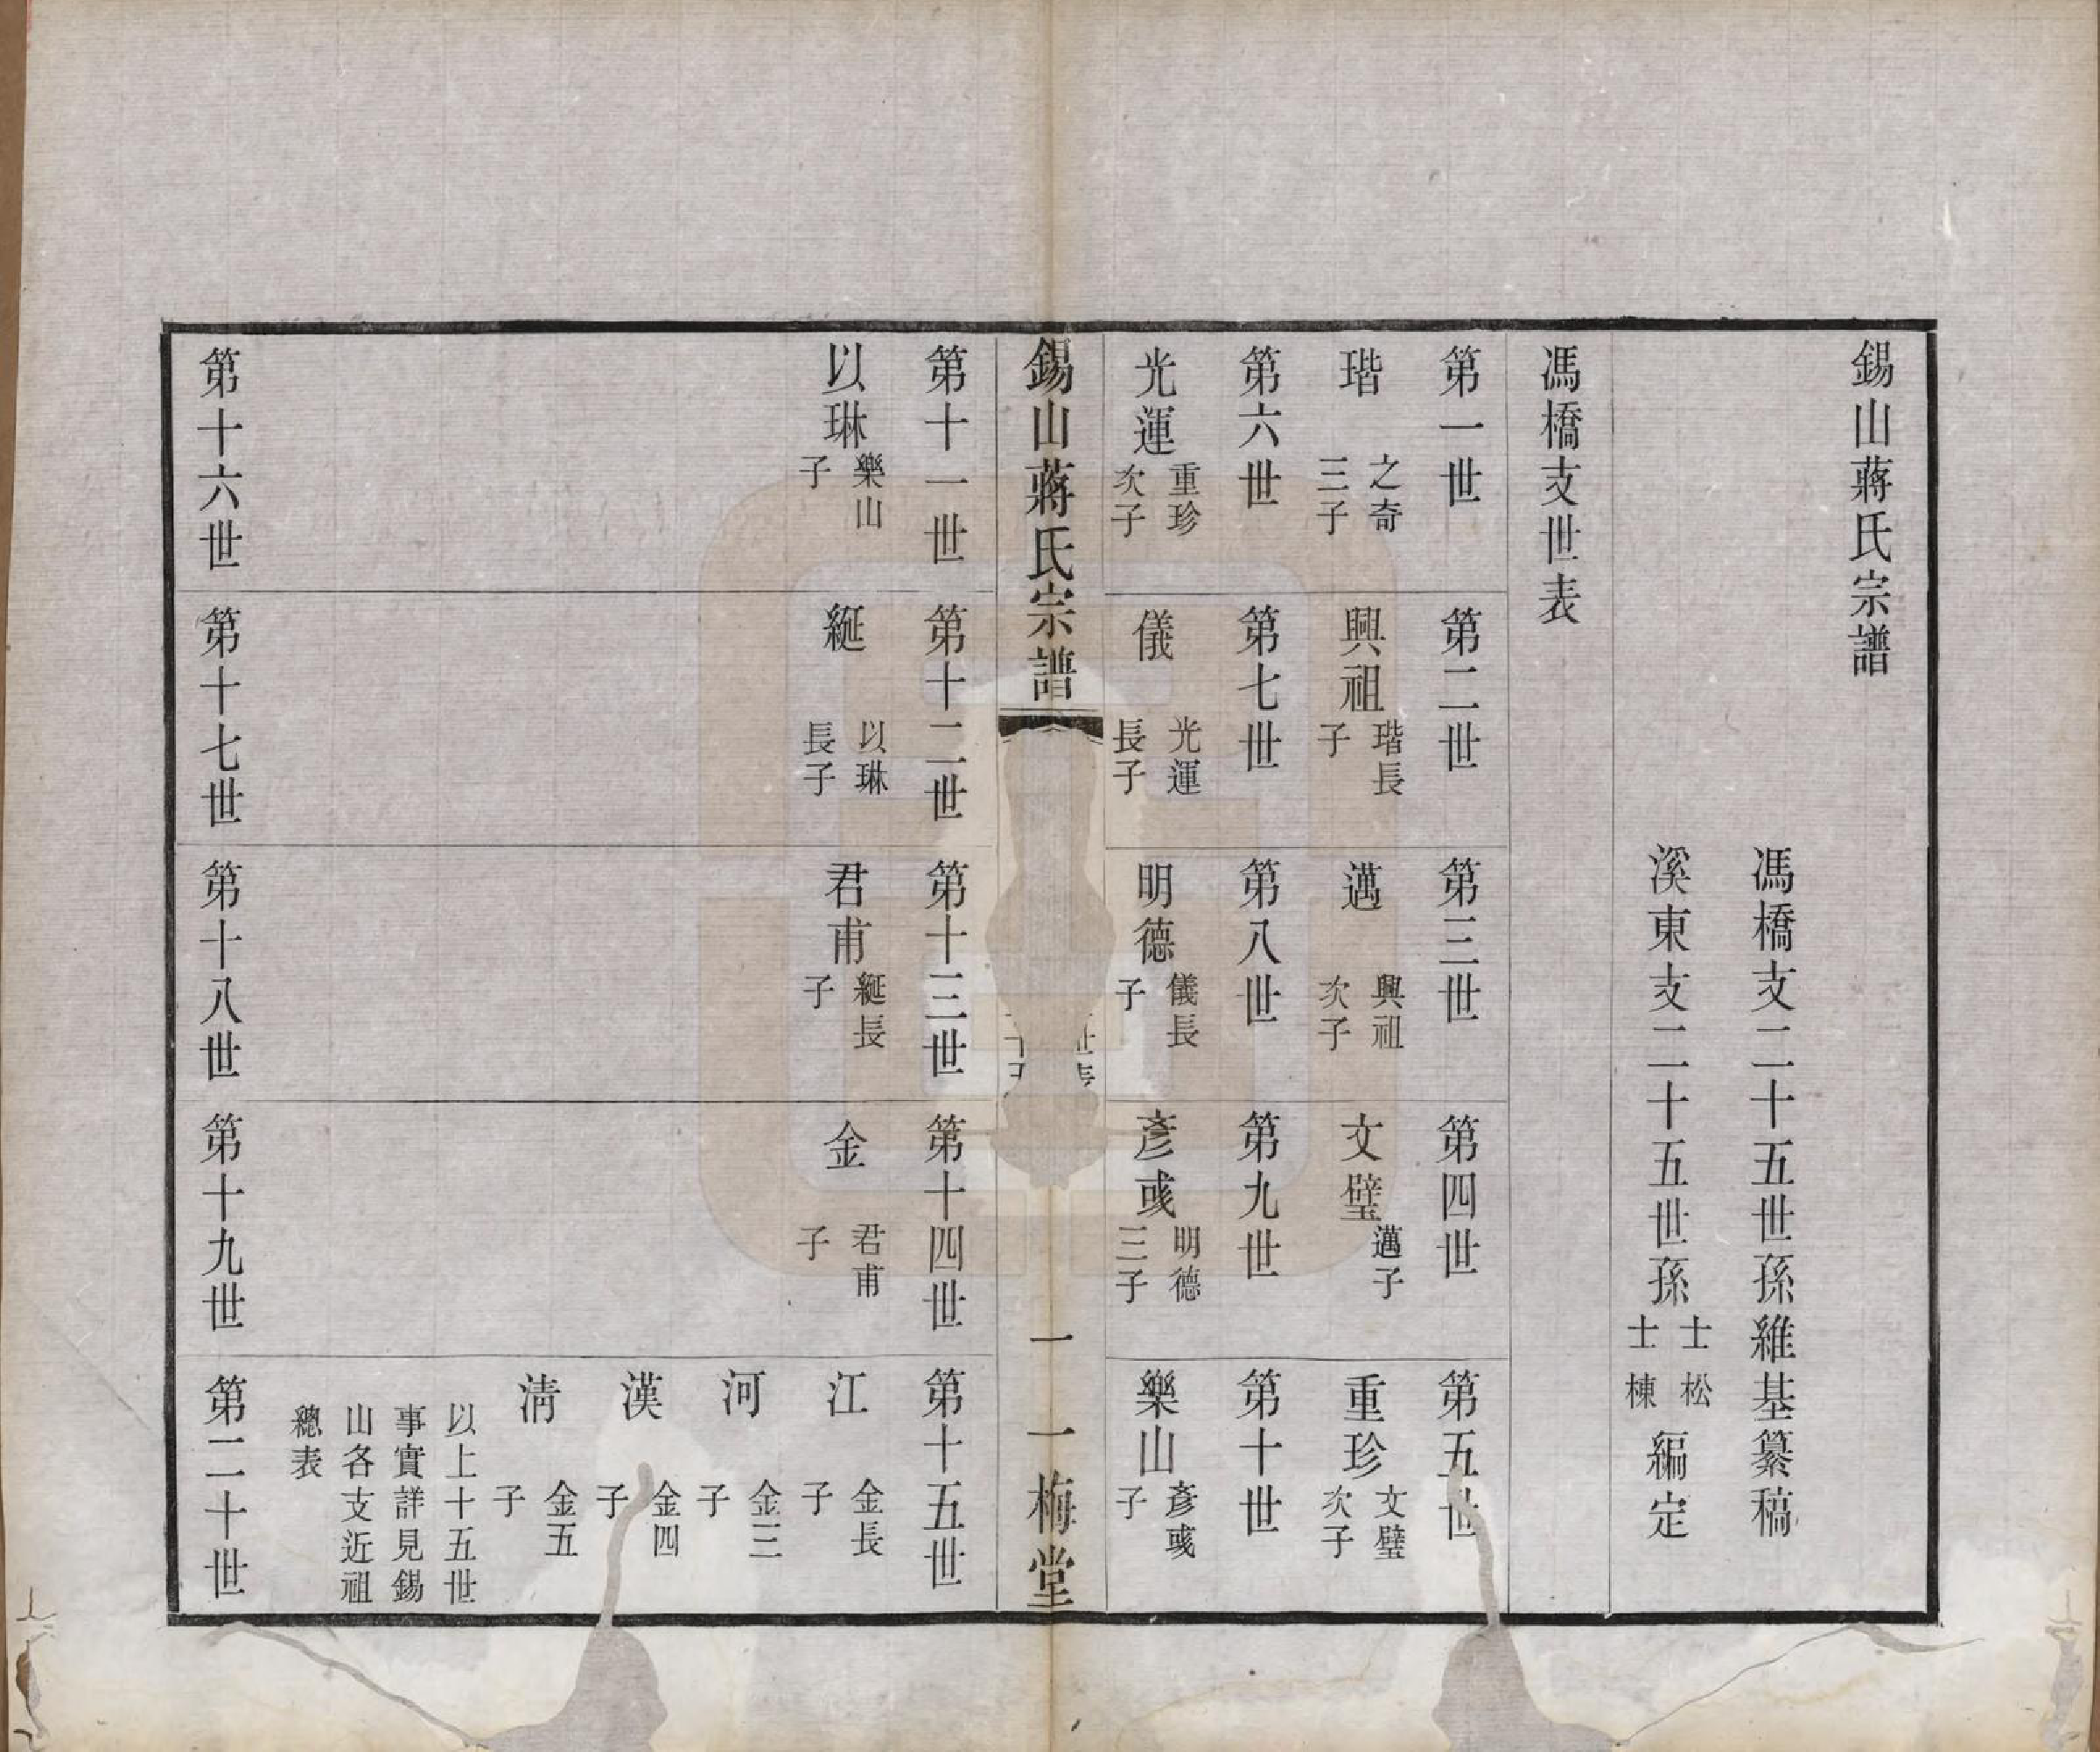 錫山蔣氏宗譜
馮橋支二十五世孫維基纂稿
溪東支二十五世孫士松士棟編定
馮橋支世表
第一世
第二世
第三世
第四世
第五世
瑎 之奇三子
興祖 瑎長子
邁 興祖次子
文璧 邁子
重珍 文璧次子
第六世
第七世
第八世
第九世
第十世
光運 重珍次子
儀 光運長子
明德 儀長子
彥彧 明德三子
樂山 彥彧子
錫山蔣氏宗譜
一
一梅堂
第十一世
第十二世
第十三世
第十四世
第十五世
以琳 樂山子
綖 以琳長子
君甫 綖長子
金 君甫子
江 金長子
河 金三子
漢 金四子
淸 金五子
以上十五世
事實詳見錫
山各支近祖
總表
第十六世
第十七世
第十八世
第十九世
第二十世